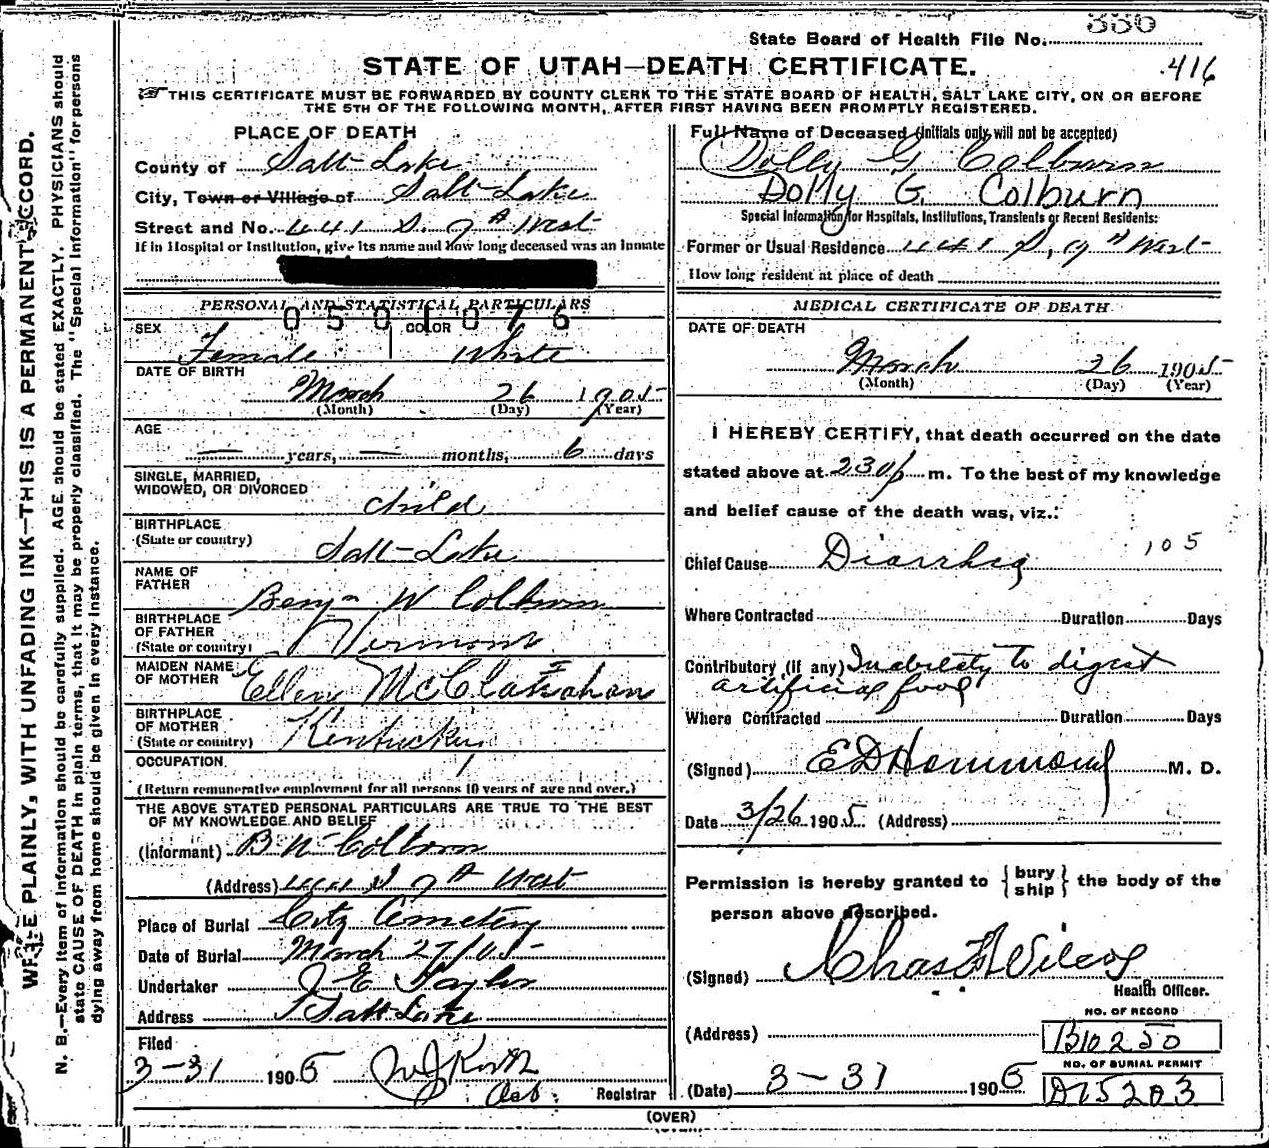 336
State Board of Health File No.
STATE OF UTAH—DEATH CERTIFICATE.
416
THIS CERTIFICATE MUST BE FORWARDED BY COUNTY CLERK TO THE STATE BOARD OF HEALTH, SALT LAKE CITY, ON OR BEFORE
THE 5TH OF THE FOLLOWING MONTH, AFTER FIRST HAVING BEEN PROMPTLY REGISTERED.
PLACE OF DEATH
County of Salt Lake
City, Town or Village of Salt Lake
Street and No. 441 S. 9th West
If in Hospital or Institution, give its name and how long deceased was an inmate
PERSONAL AND STATISTICAL PARTICULARS
0501076
SEX
COLOR
Female White
DATE OF BIRTH
March 26 1905
(Month) (Day) (Year)
AGE
— years, — months, 6 days
SINGLE, MARRIED,
WIDOWED, OR DIVORCED
child
BIRTHPLACE
(State or country)
Salt Lake
NAME OF
FATHER
Benj W Colburn
BIRTHPLACE
OF FATHER
(State or country)
Vermont
MAIDEN NAME
OF MOTHER
Ellen
BIRTHPLACE
OF MOTHER
(State or country)
Kentucky
OCCUPATION
(Return remunerative employment for all persons 10 years of age and over.)
THE ABOVE STATED PERSONAL PARTICULARS ARE TRUE TO THE BEST
OF MY KNOWLEDGE AND BELIEF
(Informant) B W Colburn
(Address) 441 S 9th West
Place of Burial City Cemetery
Date of Burial March 27/05
Undertaker J E Taylor
Address Salt Lake
Filed
3-31 1905
Registrar
Full Name of Deceased (Initials only will not be accepted)
Dolly G Colburn
Dolly G. Colburn
Special Information for Hospitals, Institutions, Transients or Recent Residents:
Former or Usual Residence 441 S, 9th West
How long resident at place of death
MEDICAL CERTIFICATE OF DEATH
DATE OF DEATH
March 26 1905
(Month) (Day) (Year)
I HEREBY CERTIFY, that death occurred on the date
stated above at 230 p m. To the best of my knowledge
and belief cause of the death was, viz.:
Chief Cause Diarrhea 105
Where Contracted Duration Days
Contributory (if any) Inability to digest
artificial food
Where Contracted Duration Days
(Signed) E D Hammond M. D.
Date 3/26 1905 (Address)
Permission is hereby granted to {bury
ship} the body of the
person above described.
(Signed) Chas F Wilcox
Health Officer.
(Address)
NO. OF RECORD
B10250
NO. OF BURIAL PERMIT
D15203
(Date) 3-31 1905
(OVER)
WRITE PLAINLY, WITH UNFADING INK—THIS IS A PERMANENT RECORD.
N. B.—Every item of information should be carefully supplied. AGE should be stated EXACTLY. PHYSICIANS should
state CAUSE OF DEATH in plain terms, that it may be properly classified. The "Special Information" for persons
dying away from home should be given in every instance.